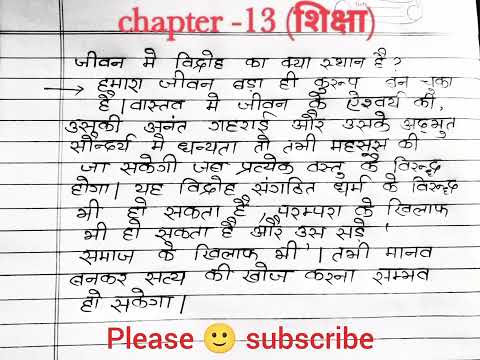 chapter -13 (शिक्षा)
जीवन मे विद्रोह का क्या स्थान है?
→ हमारा जीवन बड़ा ही कुरूप बन चुका
है। वास्तव मे जीवन के ऐश्वर्य की,
उसकी अनंत गहराई और उसके अद्भुत
सौन्दर्य मे धन्यता तो तभी महसूस की
जा सकेगी जब प्रत्येक वस्तु के विरुद्ध
होगा। यह विद्रोह संगठित धर्म के विरुद्ध
भी हो सकता है, परम्परा के खिलाफ
भी हो सकता है और उस सड़े '
समाज के खिलाफ भी'। तभी मानव
बनकर सत्य की खोज करना सम्भव
हो सकेगा।
Please 🙂 subscribe